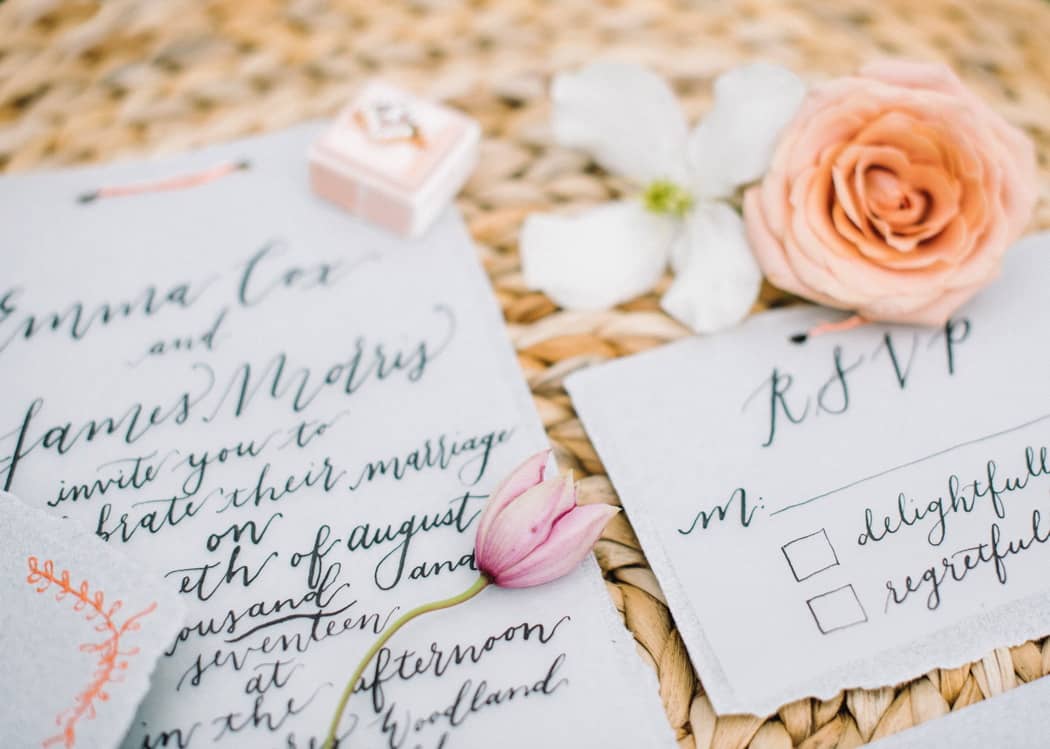 Emma Cox
and
James Morris
invite you to
brate their marriage
on
eth of august
ousand and
seventeen
at
in the afternoon
Woodland
RSVP
M:
delightfull
regretful